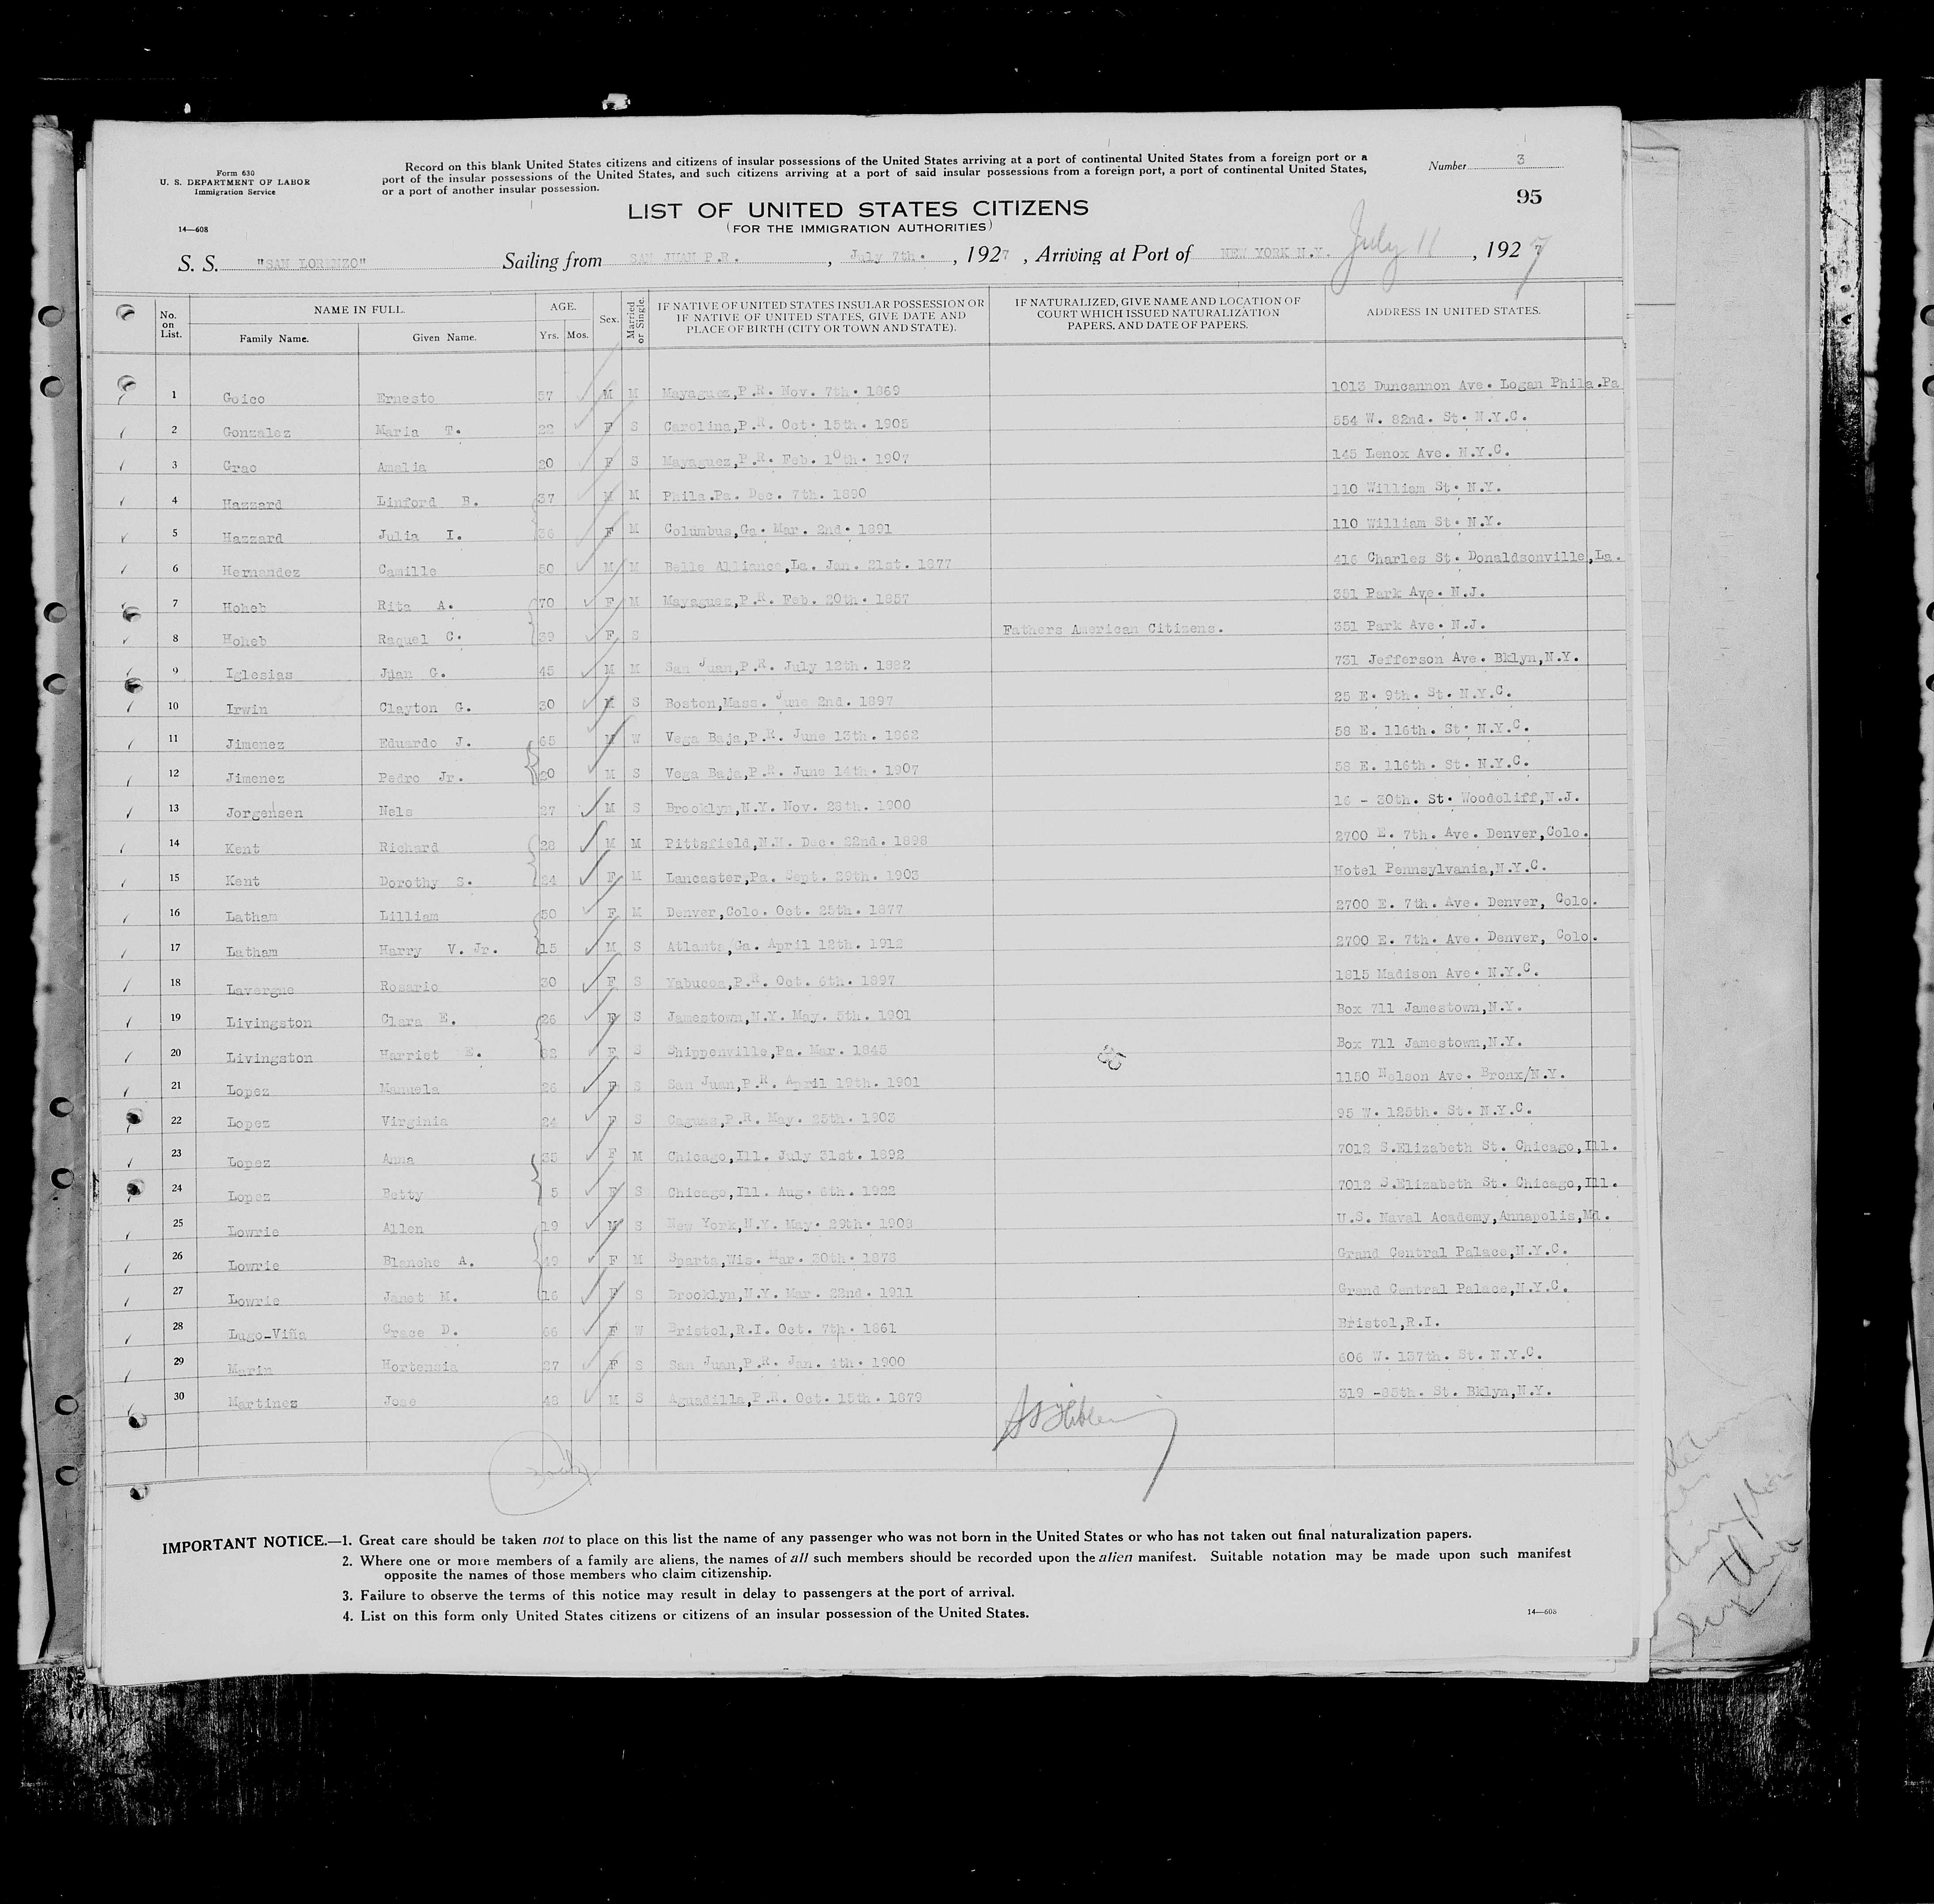 Form 630
U. S. DEPARTMENT OF LABOR
Immigration Service
14—608
Record on this blank United States citizens and citizens of insular possessions of the United States arriving at a port of continental United States from a foreign port or a
port of the insular possessions of the United States, and such citizens arriving at a port of said insular possessions from a foreign port, a port of continental United States,
or a port of another insular possession.
Number 3
95
LIST OF UNITED STATES CITIZENS
(FOR THE IMMIGRATION AUTHORITIES)
S. S. "SAN LORENZO" Sailing from SAN JUAN P.R. , July 7th. , 1927 , Arriving at Port of NEW YORK N.Y. July 11 , 1927
No. on List. NAME IN FULL. Family Name. Given Name. AGE. Yrs. Mos. Sex. Married or Single. IF NATIVE OF UNITED STATES INSULAR POSSESSION OR IF NATIVE OF UNITED STATES, GIVE DATE AND PLACE OF BIRTH (CITY OR TOWN AND STATE). IF NATURALIZED, GIVE NAME AND LOCATION OF COURT WHICH ISSUED NATURALIZATION PAPERS, AND DATE OF PAPERS. ADDRESS IN UNITED STATES.
1 Goico Ernesto 57 M M Mayaguez,P.R. Nov. 7th. 1869 1013 Duncannon Ave. Logan Phila.Pa
2 Gonzalez Maria T. 22 F S Carolina,P.R. Oct. 15th. 1905 554 W. 82nd. St. N.Y.C.
3 Grao Amalia 20 F S Mayaguez,P.R. Feb. 10th. 1907 145 Lenox Ave. N.Y.C.
4 Hazzard Linford B. 37 M M Phila.Pa. Dec. 7th. 1890 110 William St. N.Y.
5 Hazzard Julia I. 36 F M Columbus,Ga. Mar. 2nd. 1891 110 William St. N.Y.
6 Hernandez Camille 50 M M Belle Alliance,La. Jan. 21st. 1877 416 Charles St. Donaldsonville,La.
7 Hoheb Rita A. 70 F M Mayaguez,P.R. Feb. 20th. 1857 351 Park Ave. N.J.
8 Hoheb Raquel C. 39 F S Fathers American Citizens. 351 Park Ave. N.J.
9 Iglesias Juan G. 45 M M San Juan,P.R. July 12th. 1882 731 Jefferson Ave. Bklyn,N.Y.
10 Irwin Clayton G. 30 M S Boston,Mass. June 2nd. 1897 25 E. 9th. St. N.Y.C.
11 Jimenez Eduardo J. 65 M W Vega Baja,P.R. June 13th. 1862 58 E. 116th. St. N.Y.C.
12 Jimenez Pedro Jr. 20 M S Vega Baja,P.R. June 14th. 1907 58 E. 116th. St. N.Y.C.
13 Jorgensen Nels 27 M S Brooklyn,N.Y. Nov. 28th. 1900 16 - 30th. St. Woodcliff,N.J.
14 Kent Richard 28 M M Pittsfield,N.H. Dec. 22nd. 1898 2700 E. 7th. Ave. Denver,Colo.
15 Kent Dorothy S. 24 F M Lancaster,Pa. Sept. 29th. 1903 Hotel Pennsylvania,N.Y.C.
16 Latham Lilliam 50 F M Denver,Colo. Oct. 25th. 1877 2700 E. 7th. Ave. Denver, Colo.
17 Latham Harry V. Jr. 15 M S Atlanta,Ga. April 12th. 1912 2700 E. 7th. Ave. Denver, Colo.
18 Lavergne Rosario 30 F S Yabucoa,P.R. Oct. 6th. 1897 1815 Madison Ave. N.Y.C.
19 Livingston Clara E. 26 F S Jamestown,N.Y. May. 5th. 1901 Box 711 Jamestown,N.Y.
20 Livingston Harriet E. 82 F S Shippenville,Pa. Mar. 1845 Box 711 Jamestown,N.Y.
21 Lopez Manuela 26 F S San Juan,P.R. April 19th. 1901 1150 Nelson Ave. Bronx/N.Y.
22 Lopez Virginia 24 F S Caguas,P.R. May. 25th. 1903 95 W. 125th. St. N.Y.C.
23 Lopez Anna 35 F M Chicago,Ill. July 31st. 1892 7012 S.Elizabeth St. Chicago,Ill.
24 Lopez Betty 5 F S Chicago,Ill. Aug. 6th. 1922 7012 S.Elizabeth St. Chicago,Ill.
25 Lowrie Allen 19 M S New York,N.Y. May. 29th. 1908 U.S. Naval Academy,Annapolis,Md.
26 Lowrie Blanche A. 49 F M Sparta,Wis. Mar. 30th. 1878 Grand Central Palace,N.Y.C.
27 Lowrie Janet M. 16 F S Brooklyn,N.Y. Mar. 22nd. 1911 Grand Central Palace,N.Y.C.
28 Lugo-Viña Grace D. 66 F W Bristol,R.I. Oct. 7th. 1861 Bristol,R.I.
29 Marin Hortensia 27 F S San Juan,P.R. Jan. 4th. 1900 606 W. 137th. St. N.Y.C.
30 Martinez Jose 48 M S Aguadilla,P.R. Oct. 15th. 1879 319 -85th. St. Bklyn,N.Y.
IMPORTANT NOTICE.—1. Great care should be taken not to place on this list the name of any passenger who was not born in the United States or who has not taken out final naturalization papers.
2. Where one or more members of a family are aliens, the names of all such members should be recorded upon the alien manifest. Suitable notation may be made upon such manifest
opposite the names of those members who claim citizenship.
3. Failure to observe the terms of this notice may result in delay to passengers at the port of arrival.
4. List on this form only United States citizens or citizens of an insular possession of the United States.
14—608